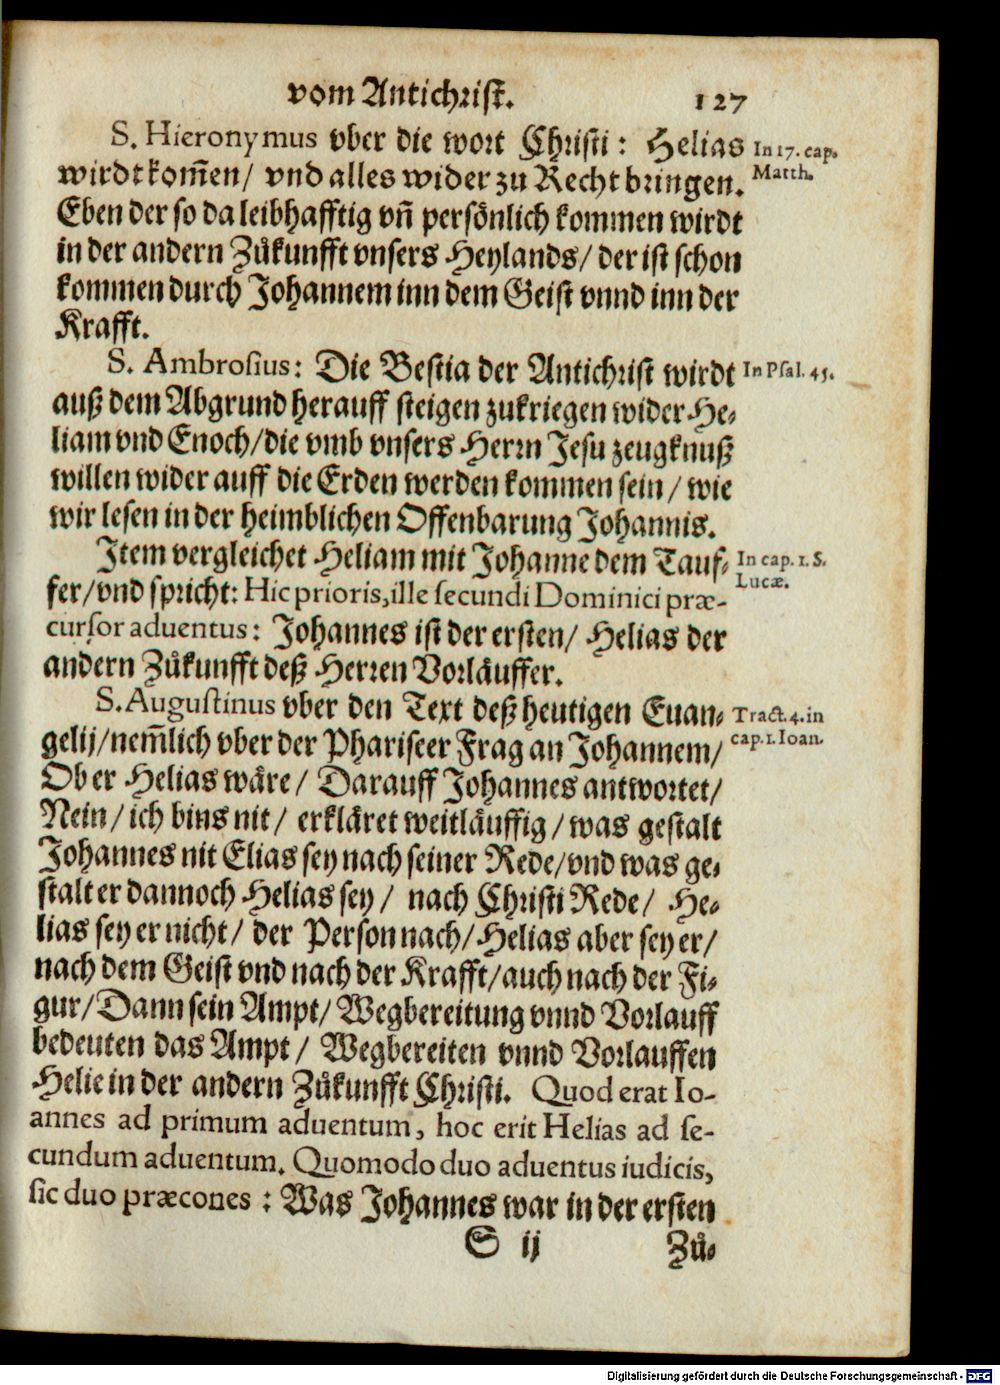 vom Antichrist. 127
S. Hieronymus vber die wort Christi: Helias
In 17. cap.
wirdt kom̃en/ vnd alles wider zu Recht bringen.
Matth.
Eben der so da leibhafftig vñ persönlich kommen wirdt
in der andern Zůkunfft vnsers Heylands/ der ist schon
kommen durch Johannem inn dem Geist vnnd inn der
Krafft.
S. Ambrosius: Die Bestia der Antichrist wirdt
In Psal. 45.
auß dem Abgrund herauff steigen zukriegen wider He-
liam vnd Enoch/ die vmb vnsers Herrn Jesu zeugknuß
willen wider auff die Erden werden kommen sein/ wie
wir lesen in der heimblichen Offenbarung Johannis.
Item vergleichet Heliam mit Johanne dem Tauf-
In cap. 1. S.
fer/ vnd spricht: Hic prioris, ille secundi Dominici præ-
Lucæ.
cursor aduentus: Johannes ist der ersten/ Helias der
andern Zůkunfft deß Herren Vorläuffer.
S. Augustinus vber den Text deß heutigen Euan-
Tract. 4. in
gelij/ nem̃lich vber der Phariseer Frag an Johannem/
cap. 1. Ioan.
Ob er Helias wäre/ Darauff Johannes antwortet/
Nein/ ich bins nit/ erkläret weitläuffig/ was gestalt
Johannes nit Elias sey nach seiner Rede/ vnd was ge-
stalt er dannoch Helias sey/ nach Christi Rede/ He-
lias sey er nicht/ der Person nach/ Helias aber sey er/
nach dem Geist vnd nach der Krafft/ auch nach der Fi-
gur/ Dann sein Ampt/ Wegbereitung vnnd Vorlauff
bedeuten das Ampt/ Wegbereiten vnnd Vorlauffen
Helie in der andern Zůkunfft Christi. Quod erat Io-
annes ad primum aduentum, hoc erit Helias ad se-
cundum aduentum. Quomodo duo aduentus iudicis,
sic duo præcones: Was Johannes war in der ersten
S ij Zů-
Digitalisierung gefördert durch die Deutsche Forschungsgemeinschaft - DFG